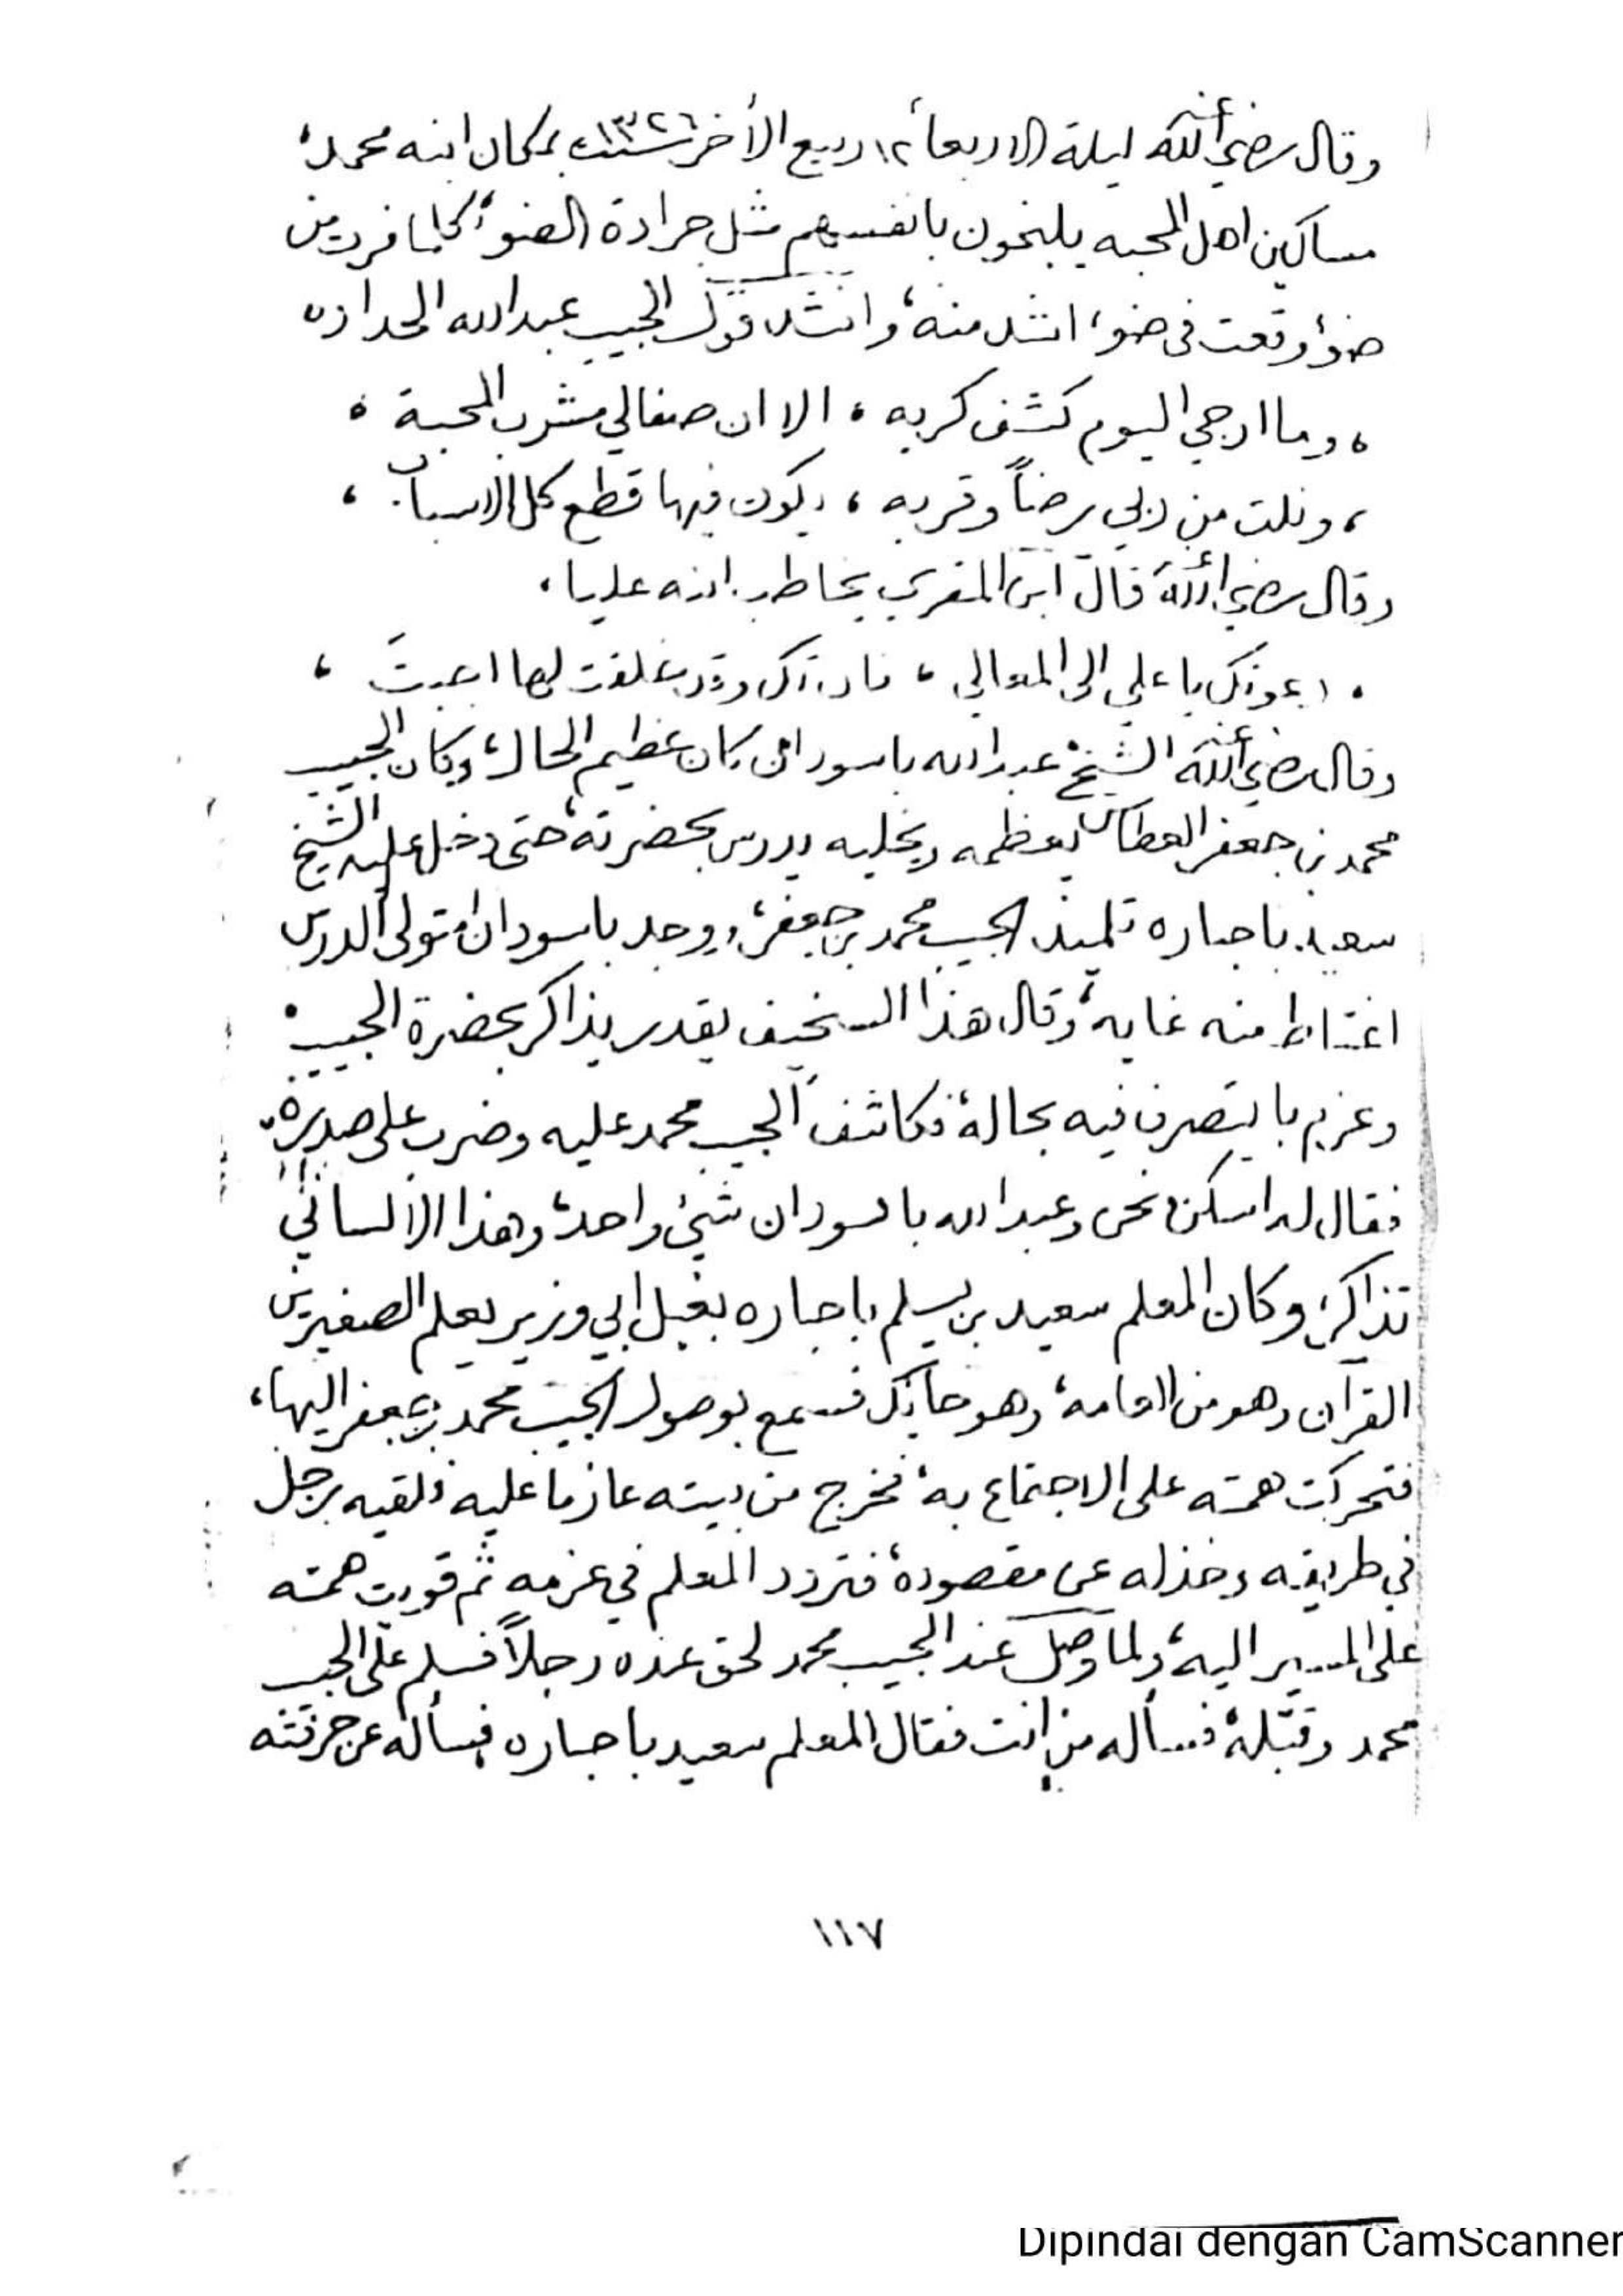 وقال رضي الله عنه ليلة الاربعاء ١٢ ربيع الأخر سنة ١٣٢٦ بمكان ابنه محمد،
مساكين اهل المحبه يلبخون بانفسهم مثل جرادة الضوء، كلما فرت من
ضوء وقعت في ضوء اشد منه، وانشد قول الحبيب عبدالله الحداد:
، وما ارجي اليوم كشف كربه ، الا ان صفالي مشرب المحبة ،
، ونلت من ربي رضاً وقربه ، يكون فيها قطع كل الاسباب ،
وقال رضي الله قال ابن المقري يخاطب ابنه عليا ،
، دعوتك يا علي الى المعالي ، فادبتك وقد غلقت لها
وقال رضي الله عنه الشيخ عبدالله باسودان كان عظيم الحال، وكان الحبيب
محمد بن جعفر العطاس يعظمه ويخليه يدرس بحضرته، حتى دخل عليه الشيخ
سعيد باجباره تلميذ الحبيب محمد بن جعفر، ووجد باسودان متولى الدرس
اغتاظ منه غايه، وقال هذا السخيف يقدر يذاكر بحضرة الحبيب،
وعزم با يتصرف فيه بحاله، فكاشف الحبيب محمد عليه وضرب على صدره،
فقال له اسكن، نحن وعبدالله باسودان شيئ واحد، وهذا الا لساني
تذاكر، وكان المعلم سعيد بن يسلم باجباره بغيل ابي وزير يعلم الصغيرين
القرآن وهو من العامه، وهو حايك فسمع بوصول الحبيب محمد بن جعفر اليها،
فتحركت همته على الاجتماع به، فخرج من بيته عازما عليه فلقيه رجل
في طريقه وخذله عن مقصوده، فتردد المعلم في عزمه ثم قويت همته
على المسير اليه، ولما وصل عند الحبيب محمد لحق عنده رجلاً فسلم على الحبيب
محمد وقبّله، فسأله من انت فقال المعلم سعيد باجباره فسأله عن حرفته
١١٧
Dipindai dengan CamScanner